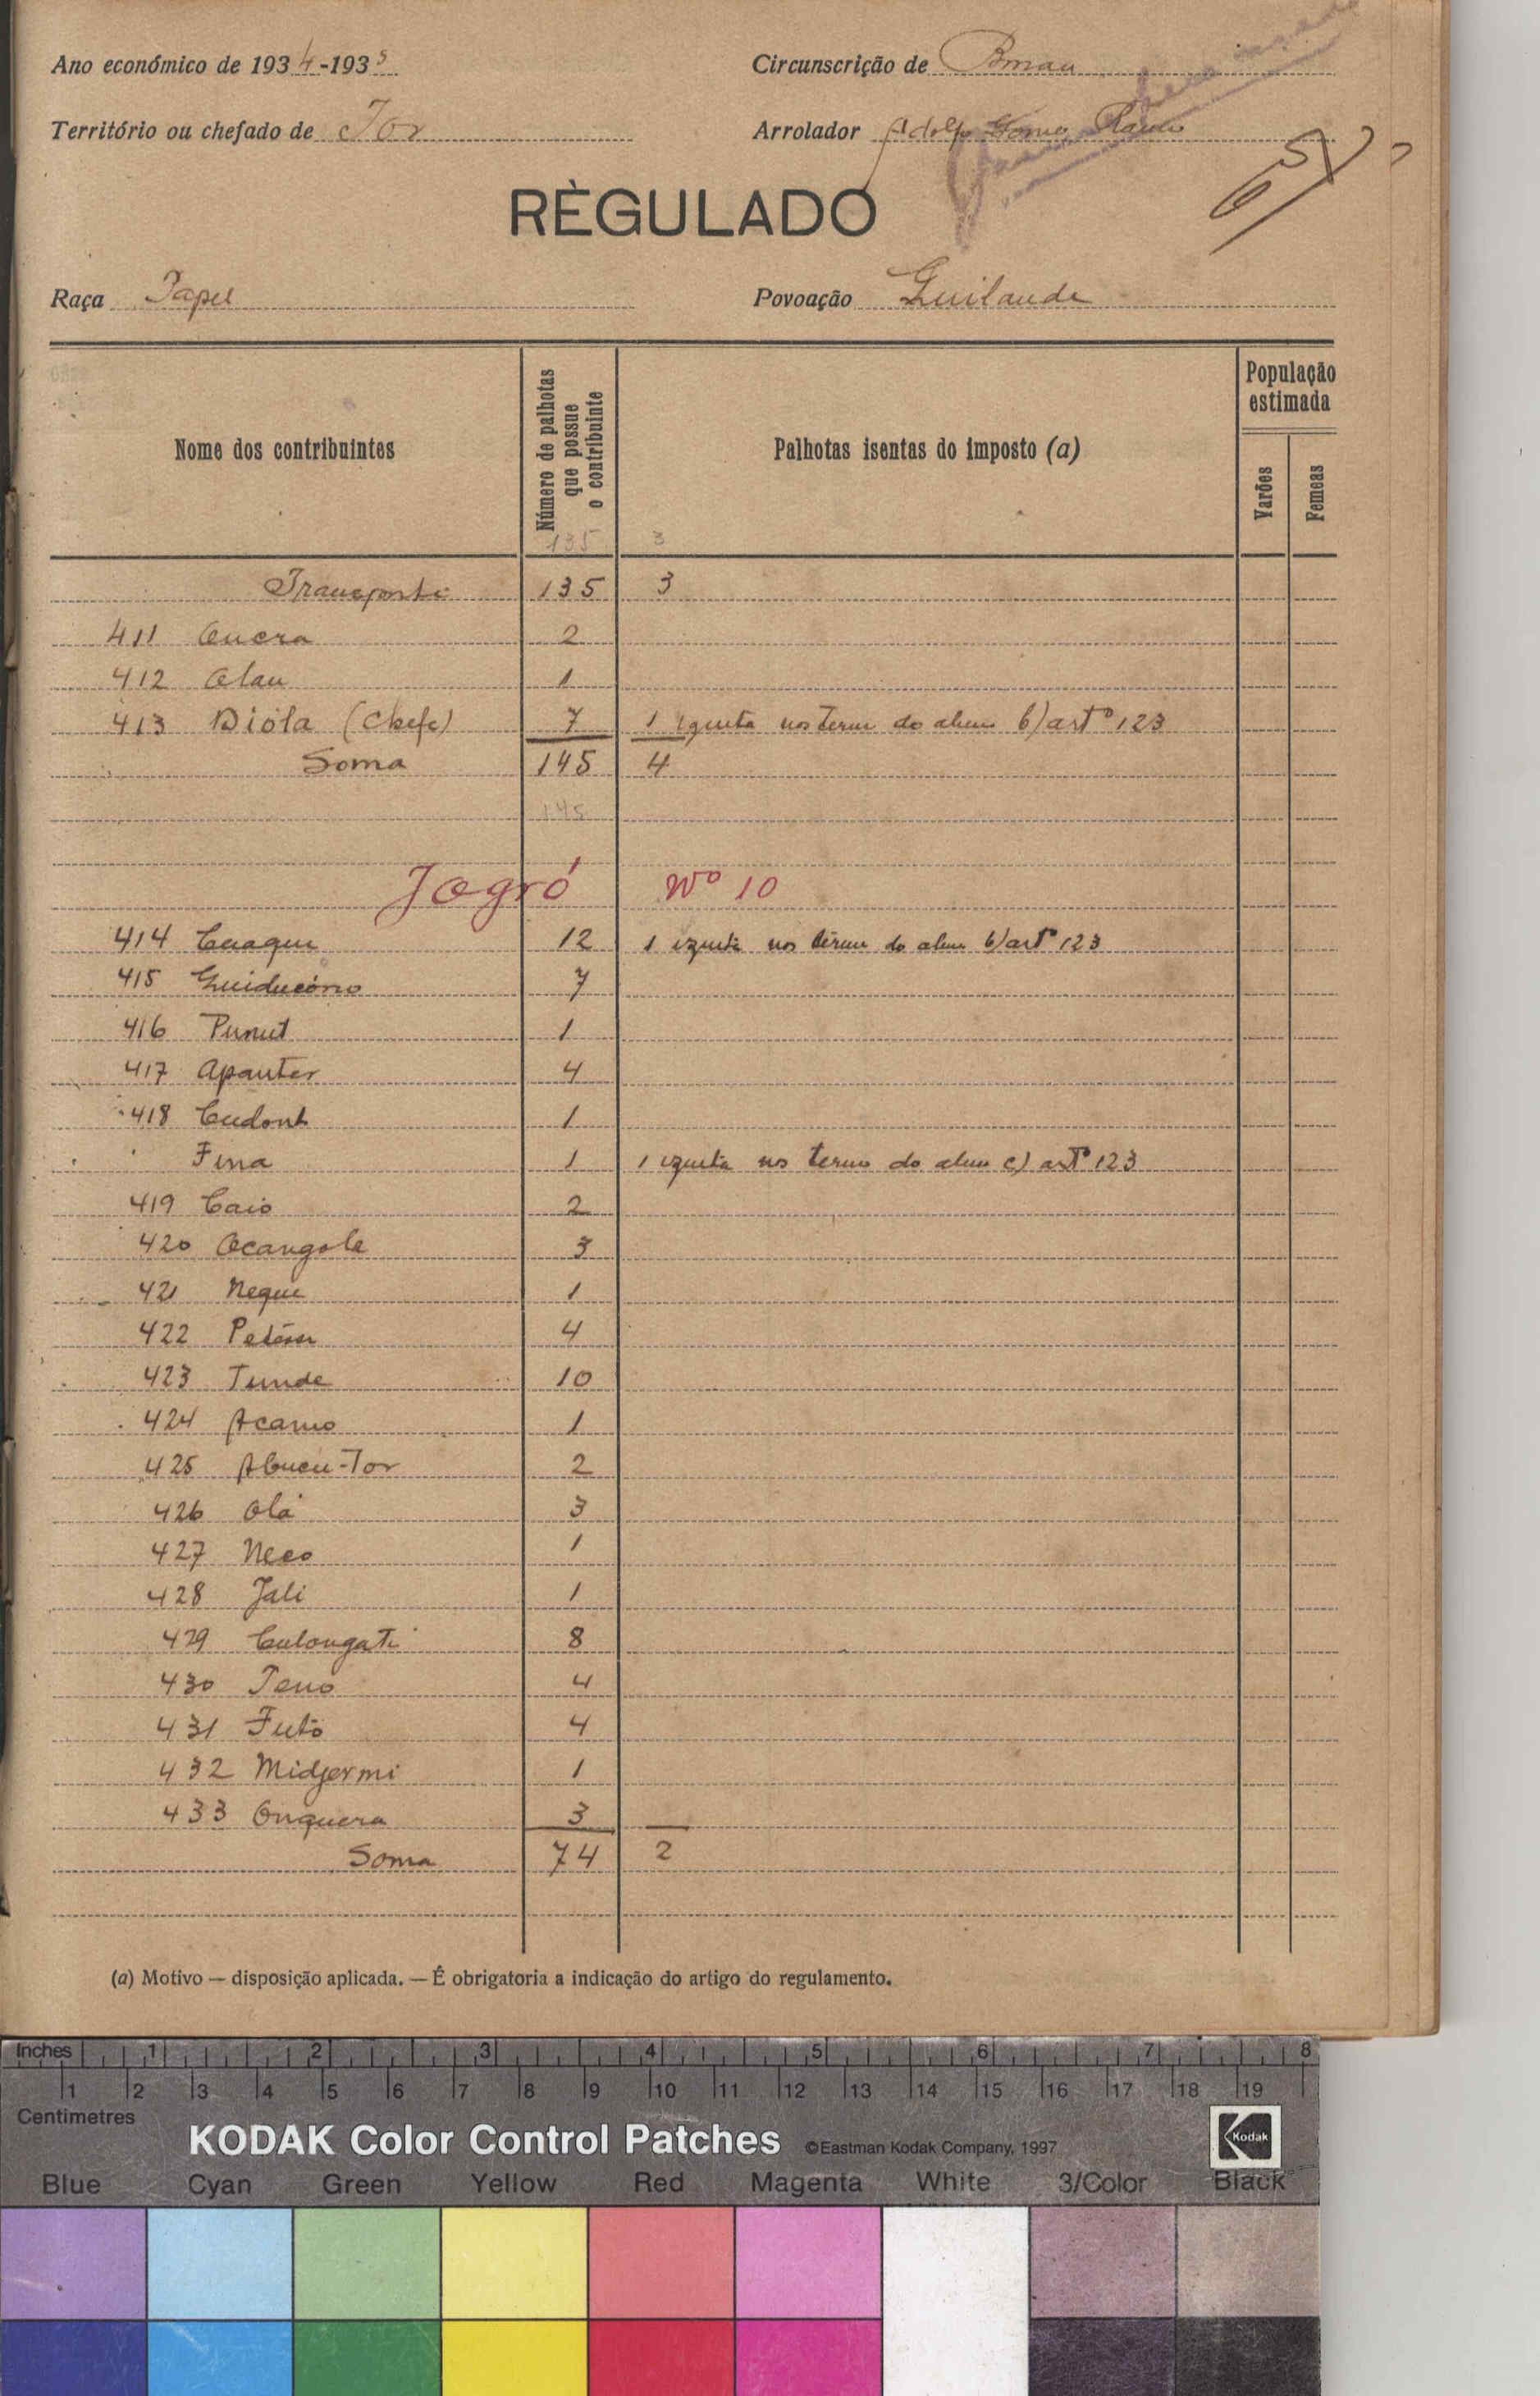 Ano económico de 1934-1935
Circunscrição de
Território ou chefado de Tor
Arrolador Adolfo Gomes
RÈGULADO
65
Raça Papel
Povoação Guilande
Nome dos contribuintes
Número de palhotas que possue o contribuinte
Palhotas isentas do imposto (a)
População estimada
Varões
Femeas
135 3
Transporte 135 3
411 2
412 1
413 Dióla (Chefe) 7 1 izenta nos term do alin b) artº 123
Soma 145 4
145
Jogró Nº 10
414 Cuaqui 12 1 izenta nos term do alin b) artº 123
415 7
416 Punut 1
417 Apanter 4
418 Cudont 1
Fina 1 1 izenta nos termo do alin c) artº 123
419 Caió 2
420 Ocangole 3
421 Neque 1
422 4
423 Tunde 10
424 1
425 -Tor 2
426 Olá 3
427 Neco 1
428 Jali 1
429 Culongate 8
430 4
431 Futó 4
432 Midjermi 1
433 Onquera 3
Soma 74 2
(a) Motivo — disposição aplicada. — É obrigatoria a indicação do artigo do regulamento.
Inches 1 2 3 4 5 6 7 8
1 2 3 4 5 6 7 8 9 10 11 12 13 14 15 16 17 18 19
Centimetres
KODAK Color Control Patches ©Eastman Kodak Company, 1997 Kodak
Blue Cyan Green Yellow Red Magenta White 3/Color Black